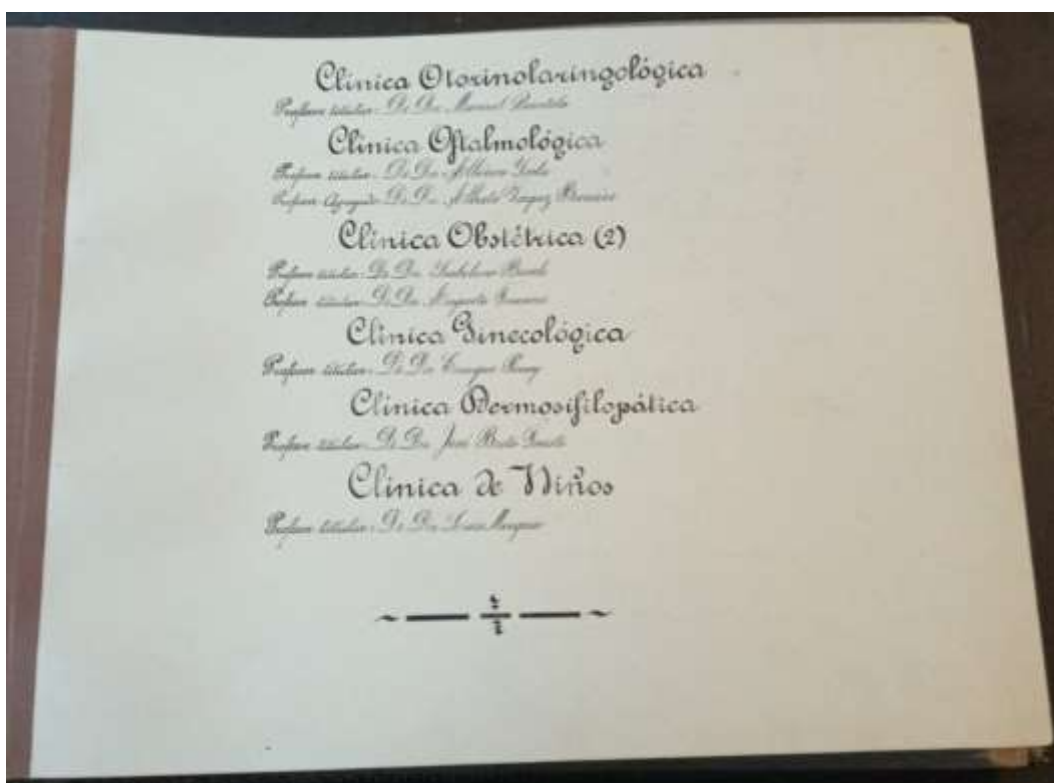 Clínica Otorinolaringológica
Profesor titular: D. Dr. Manuel
Clínica Oftalmológica
Profesor titular: D. Dr. Albino
Profesor Agregado: D. Dr. Alberto Vazquez Barriere
Clínica Obstétrica (2)
Profesor titular: D. Dr.
Profesor titular: D. Dr. Augusto
Clínica Ginecológica
Profesor titular: D. Dr. Enrique Pouey
Clínica Dermosifilopática
Profesor titular: D. Dr. José Brito Foresti
Clínica de Niños
Profesor titular: D. Dr. Luis Morquio